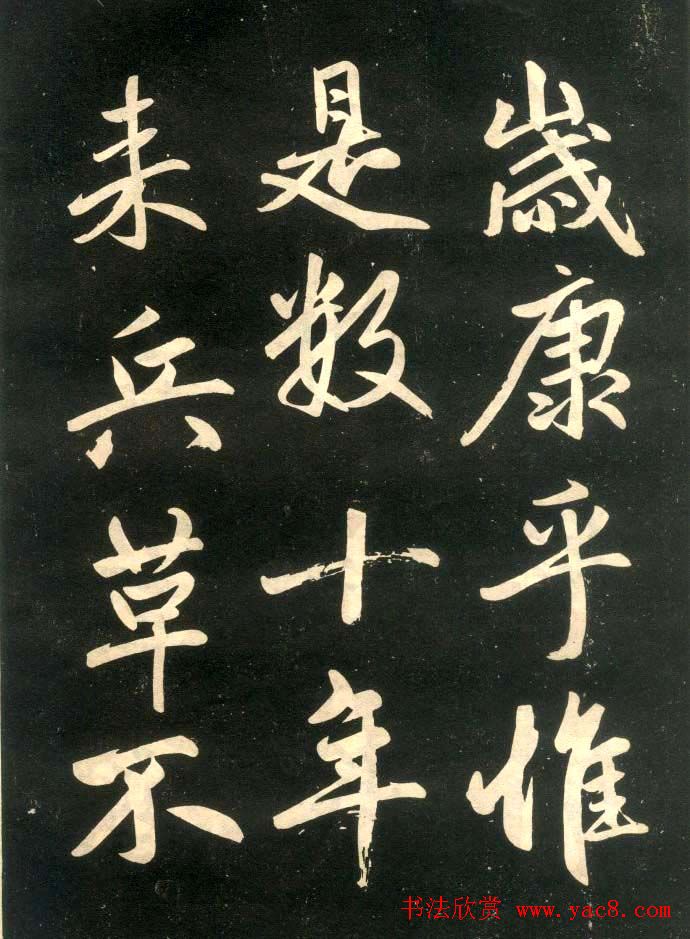 歲康乎惟
是数十年
来兵草不
书法欣赏 www.yac8.com